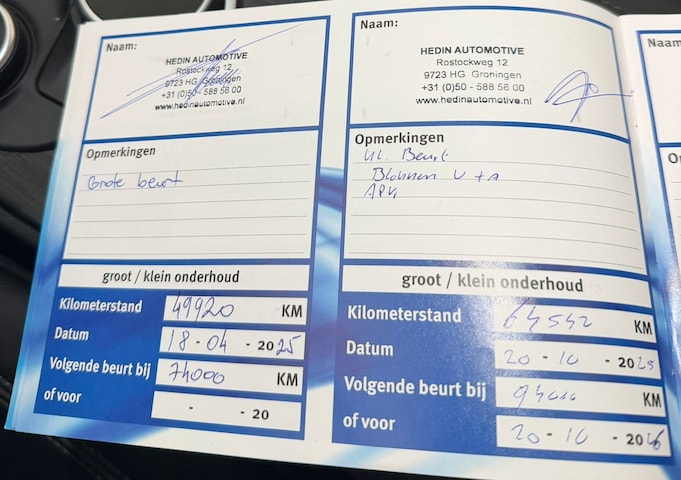 Naam:
HEDIN AUTOMOTIVE
Rostockweg 12
9723 HG Groningen
+31 (0)50 - 588 56 00
www.hedinautomotive.nl
Opmerkingen
Grote beurt
groot / klein onderhoud
Kilometerstand 49920 KM
Datum 18-04-2025
Volgende beurt bij 74000 KM
of voor - - 20
Naam:
HEDIN AUTOMOTIVE
Rostockweg 12
9723 HG Groningen
+31 (0)50 - 588 56 00
www.hedinautomotive.nl
Opmerkingen
Kl. Beurt
V + A
APK
groot / klein onderhoud
Kilometerstand 64542 KM
Datum 20-10-2025
Volgende beurt bij 94000 KM
of voor 20-10-2026
Naam